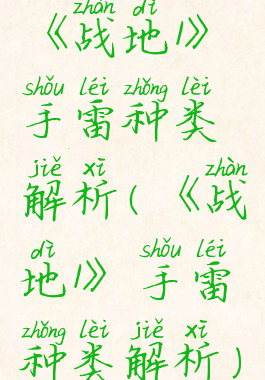 zhàn dì
《战地1》
shǒu léi zhǒng lèi
手雷种类
jiě xī zhàn
解析(《战
dì shǒu léi
地1》手雷
zhǒng lèi jiě xī
种类解析)